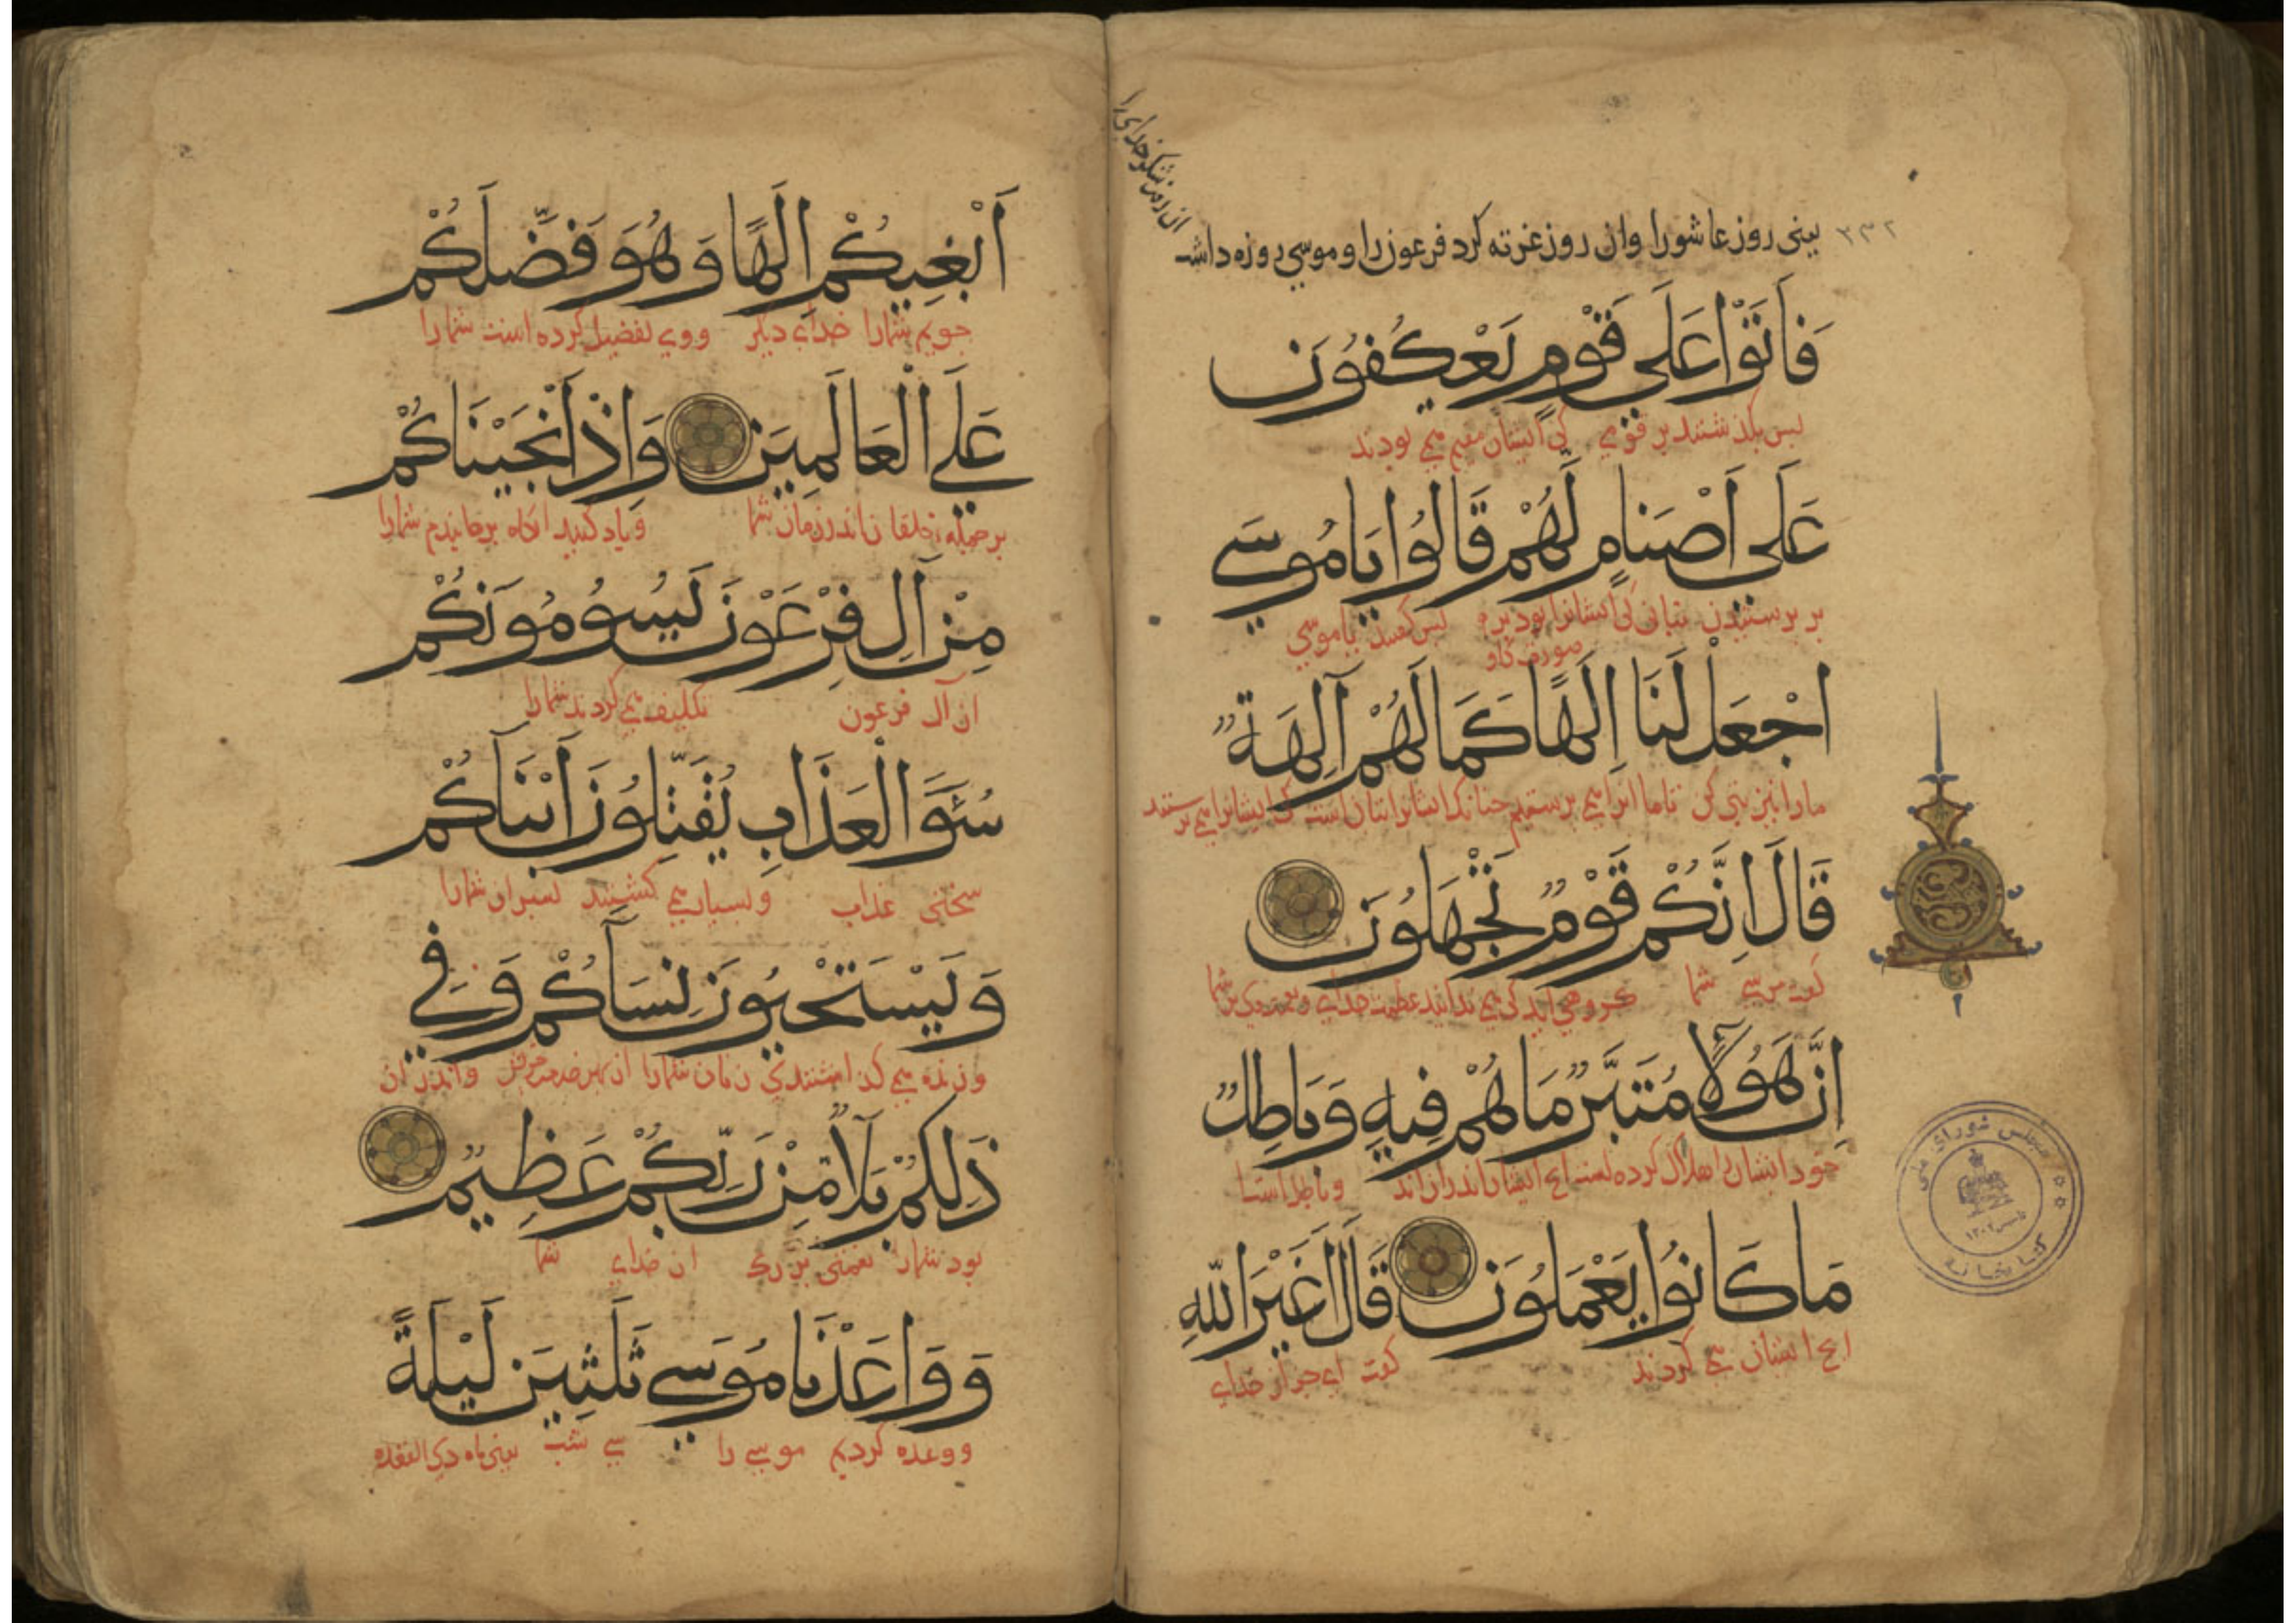 ۳۳۲
یعنی روز عاشورا وان روز غرته کرد فرعون را و موسی روزه داشت
ان روز شکر خدای را
فَأَتَوْا عَلَى قَوْمٍ يَعْكُفُونَ
بس بكذشتند بر قومی کی ایشان مقیم می بودند
عَلَى أَصْنَامٍ لَّهُمْ قَالُوا يَا مُوسَى
بر برستیدن بتانی کی ایشانرا بود بر بس کفتند یا موسی
صورت کاو
اجْعَلْ لَنَا اِلَهًا كَمَا لَهُمْ آلِهَةٌ
مارا نیز بتی کن تا ما انرا می برستیم جنانک ایشانرا بتان است کی ایشانرا می برستند
قَالَ اِنَّكُمْ قَوْمٌ تَجْهَلُونَ
کفت موسی شما کروهی اید کی می ندانید عظمت خدای و
اِنَّ هَؤُلَا مُتَبَّرٌ مَا هُمْ فِيهِ وَبَاطِلٌ
ایشان اندران اند و باطل است
مَا كَانُوا يَعْمَلُونَ قَالَ اَغَيْرَ اللهِ
انج ایشان می کردند کفت ای جز از خدای
مجلس شورای ملی
کتابخانه
أَبْغِيكُمْ اِلَهًا وَهُوَ فَضَّلَكُمْ
جویم شمارا خدای دیکر و وی تفضیل کرده است شمارا
عَلَى الْعَالَمِينَ وَاِذْ أَنْجَيْنَاكُمْ
بر جمله خلقان اندر زمان شما و یاد کنید انکاه برهانیدم شمارا
مِنْ آلِ فِرْعَوْنَ يَسُومُونَكُمْ
از آل فرعون تکلیف می کردند شمارا
سُوَءَ الْعَذَابِ يُقَتِّلُونَ أَبْنَاَكُمْ
سختی عذاب و بسیار می کشتند بسران شمارا
وَيَسْتَحْيُونَ نِسَآكُمْ وَفِي
و زنده می کذاشتندی زنان شمارا از بهر خدمت و اندر ان
ذَلِكُمْ بَلَآٌ مِنْ رَبِّكُمْ عَظِيمٌ
بود شمارا نعمتی بزرک از خدای شما
وَوَاعَدْنَا مُوسَى ثَلَثِينَ لَيْلَةً
و وعده کردیم موسی را سی شب یعنی ماه ذی القعده